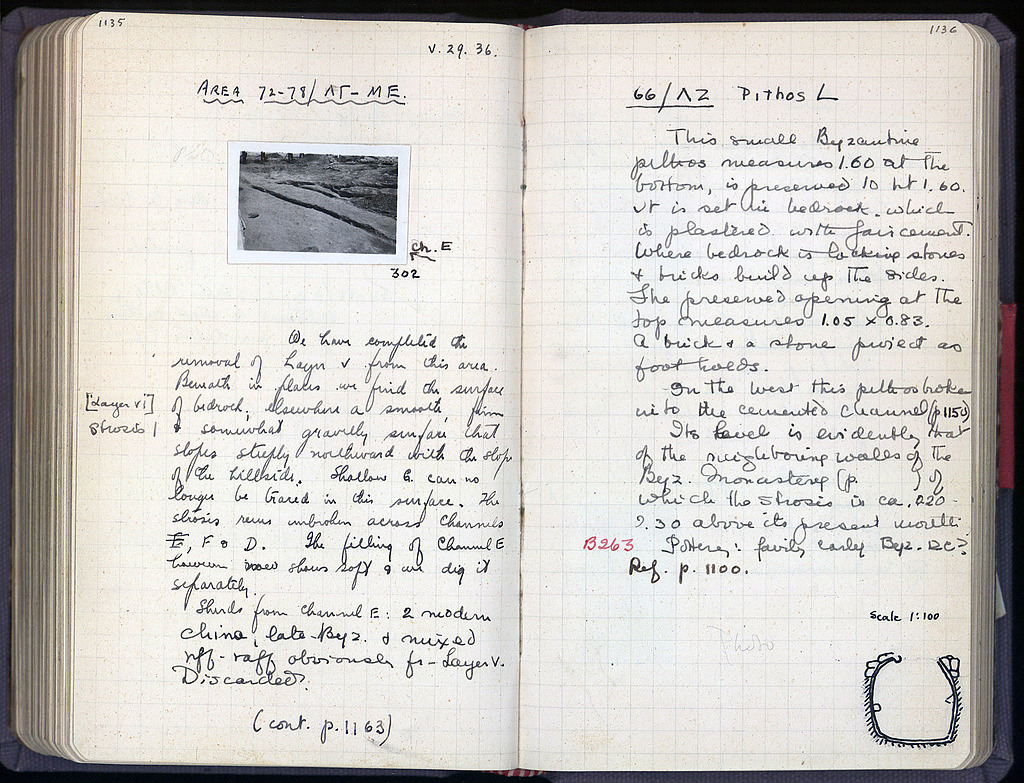 1135
V. 29. 36.
AREA 72-78/ΛΓ-ME.
Ch. E
302
We have completed the
removal of Layer V from this area.
Beneath in places we find the surface
[Layer VI] of bedrock, elsewhere a smooth, firm
Strosis 1 & somewhat gravelly surface that
slopes steeply northward with the slope
of the hillside. Shallow G. can no
longer be traced in this surface. The
strosis runs unbroken across channels
E, F & D. The filling of Channel E
however shows soft & we dig it
separately.
Sherds from channel E: 2 modern
china, late Byz. & mixed
riff-raff obviously fr- Layer V.
Discarded.
(cont. p. 1163)
1136
66/ΛΖ Pithos L
This small Byzantine
pithos measures 1.60 at the
bottom, is preserved to ht 1.60.
It is set in bedrock which
is plastered with fair cement.
Where bedrock is lacking stones
& bricks build up the sides.
The preserved opening at the
top measures 1.05 x 0.83.
A brick & a stone project as
foot holds.
On the west this pithos broke
into the cemented channel (p 1150)
Its level is evidently that
of the neighboring walls of the
Byz. Monastery (p. ) of
which the strosis is ca. 0.20-
0.30 above its present mouth.
B263 Pottery: fairly early Byz.
Ref. p. 1100.
Scale 1:100
Photo